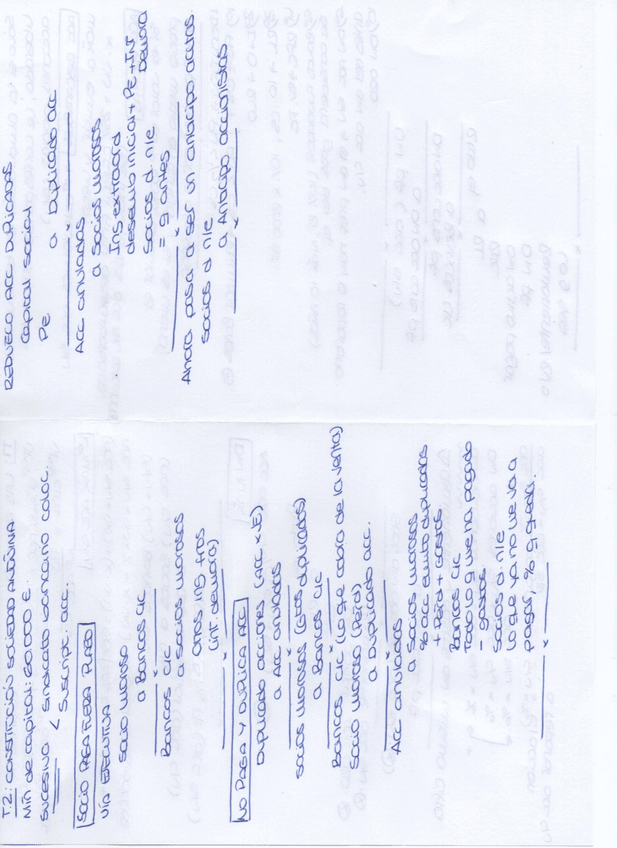 T.2: CONSTITUCIÓN SOCIEDAD ANÓNIMA
Mín de capital: 60.000 €.
Sucesiva < Sindicato bancario coloc.
Suscript. acc.
SOCIO PAGA FUERA PLAZO
VÍA EJECUTIVA
Socio moroso
a Bancos c/c
Bancos c/c
a Socios morosos
Otros ing fros
(int. demora)
NO PAGA Y DUPLICA ACC
Duplicado acciones (acc x VE)
a Acc anuladas
Socios morosos (gtos duplicados)
a Bancos c/c
Bancos c/c (lo q se cobra de la venta)
Socio moroso (Pérd)
a Duplicado acc.
Acc anuladas
a Socios morosos
% acc emito duplicados
+ Pérd + gastos
Bancos c/c
Todo lo q me ha pagado
- gastos
Socios d. n/e
lo q ya no me va a
pagar, % q queda.
REDUZCO ACC DUPLICADAS
Capital Social
PE
a Duplicado acc
Acc anuladas
a Socios morosos
Ing extraord
desemb inicial + PE + INT
Demora
Socios d. n/e
= q antes
Ahora pasa a ser un anticipo acctas.
Socios d n/e
a Anticipo accionistas